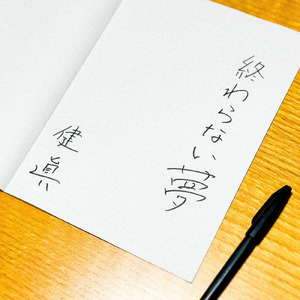 終わらない夢
健眞